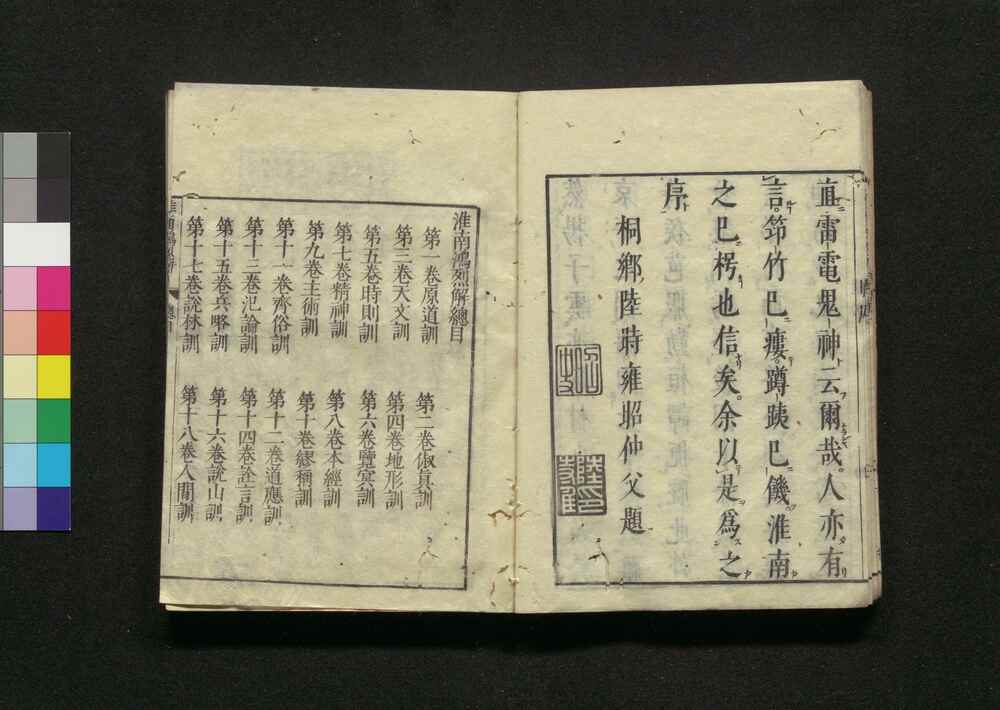 直雷電鬼神云爾哉人亦有
言笻竹已瘻蹲跠已饑淮南
之已楞也信矣余以是為之
序
桐鄉陸時雍昭仲父題
淮南鴻烈解總目
第一卷原道訓 第二卷俶真訓
第三卷天文訓 第四卷地形訓
第五卷時則訓 第六卷覽冥訓
第七卷精神訓 第八卷本經訓
第九卷主術訓 第十卷繆稱訓
第十一卷齊俗訓 第十二卷道應訓
第十三卷氾論訓 第十四卷詮言訓
第十五卷兵略訓 第十六卷說山訓
第十七卷說林訓 第十八卷人間訓